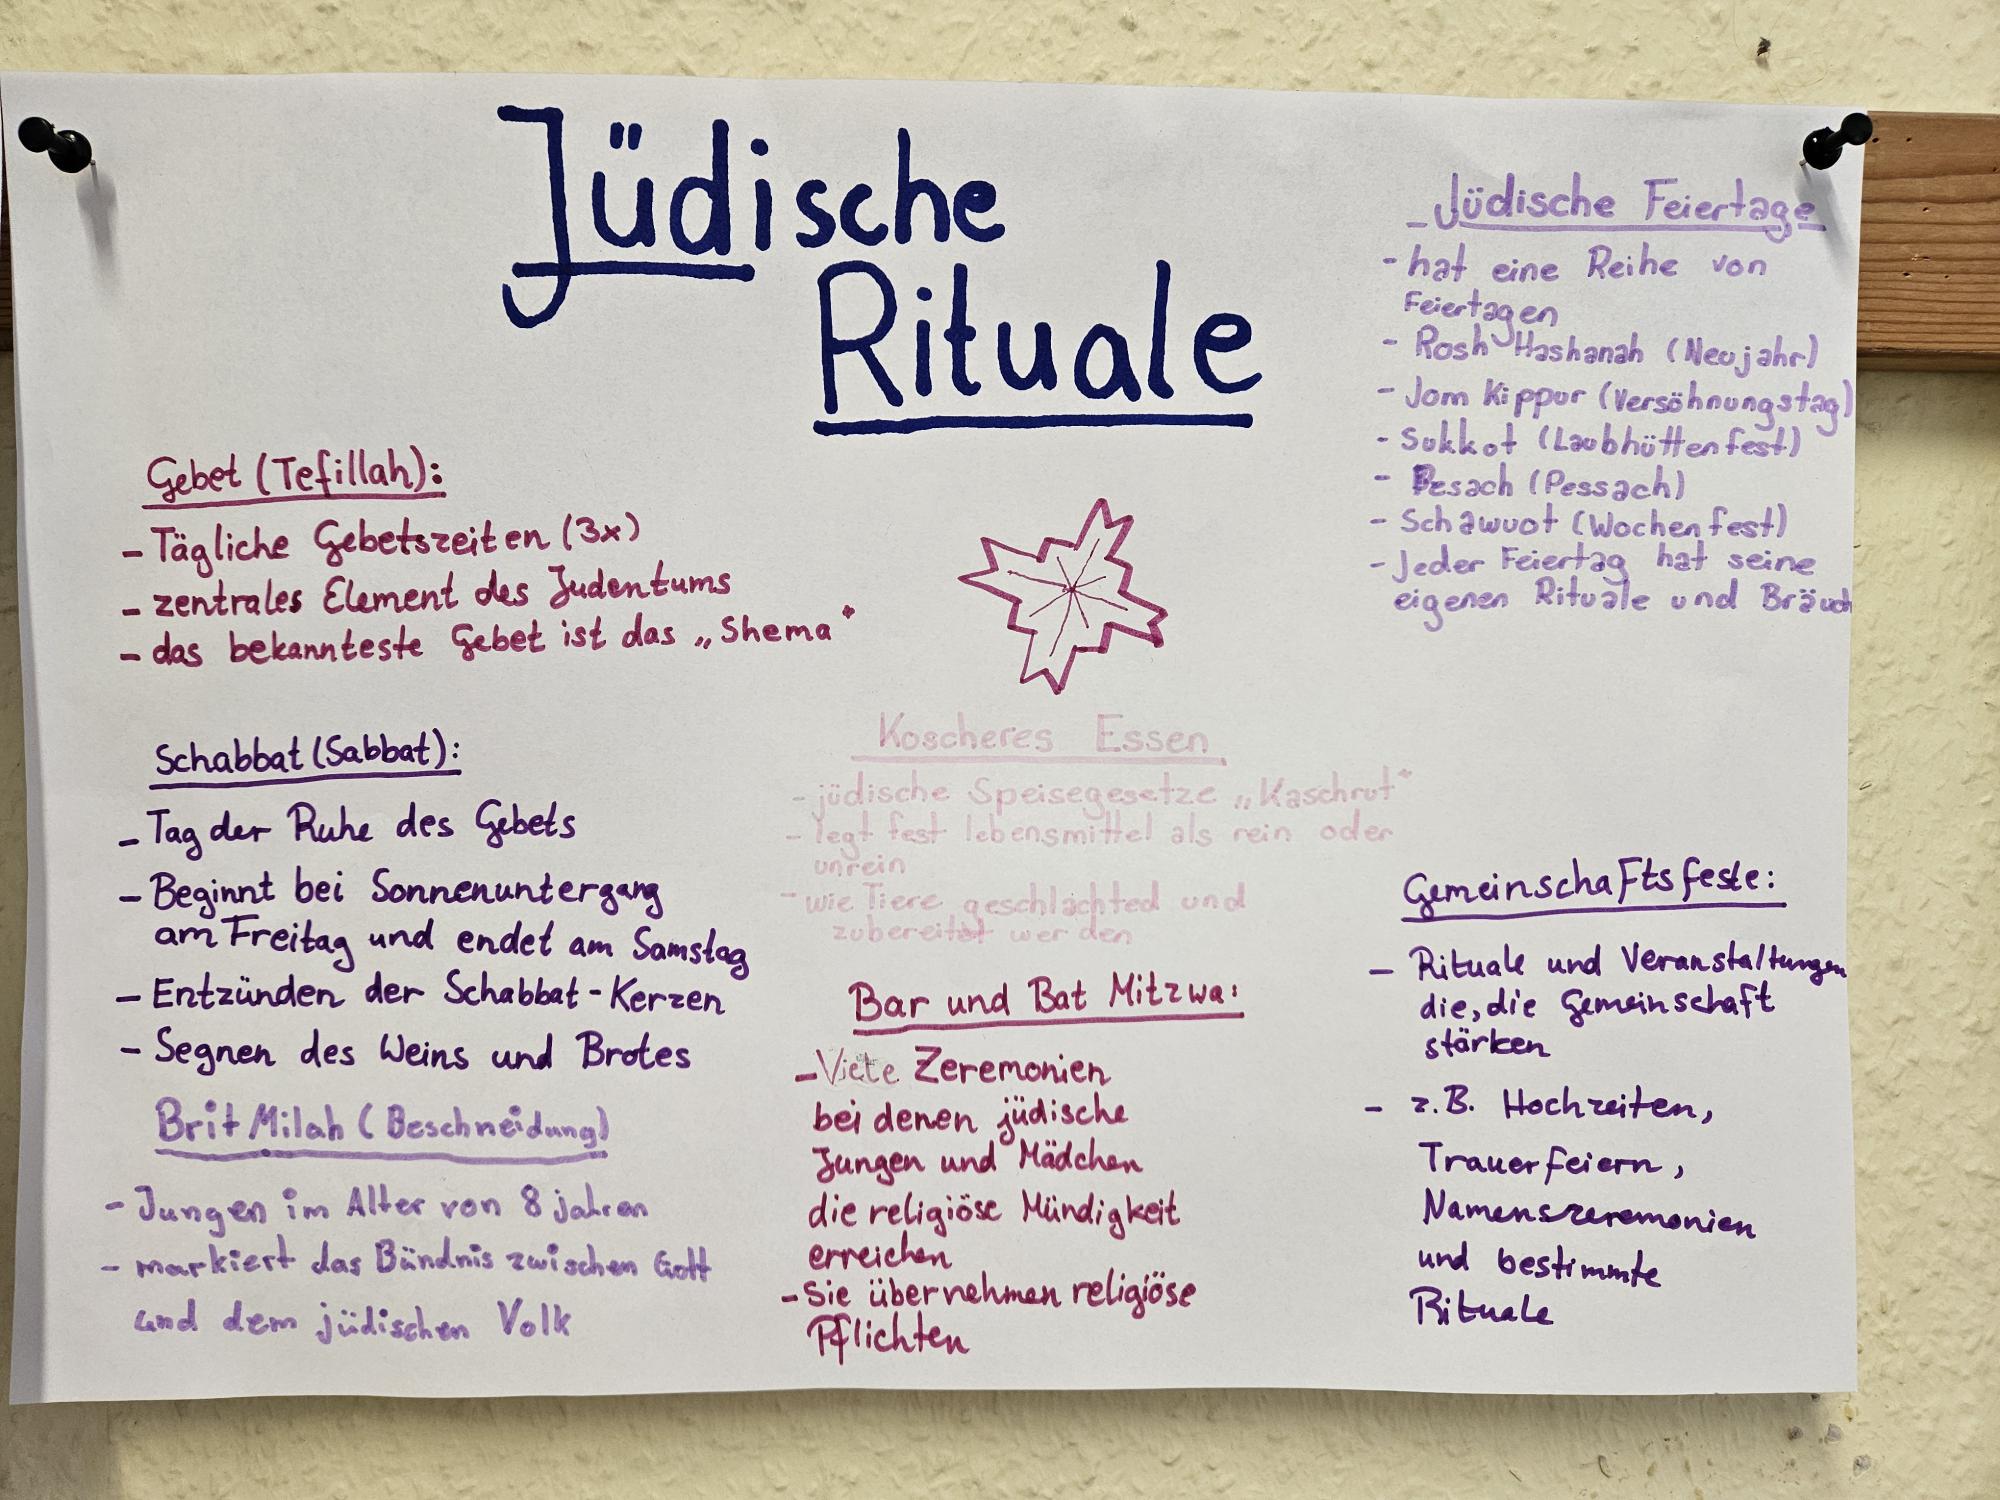 Jüdische
Rituale
Gebet (Tefillah):
- Tägliche Gebetszeiten (3x)
- zentrales Element des Judentums
- das bekannteste Gebet ist das „Shema"
Schabbat (Sabbat):
- Tag der Ruhe des Gebets
- Beginnt bei Sonnenuntergang
am Freitag und endet am Samstag
- Entzünden der Schabbat-Kerzen
- Segnen des Weins und Brotes
Brit Milah (Beschneidung)
- Jungen im Alter von 8 jahren
- markiert das Bündnis zwischen Gott
und dem jüdischen Volk
Koscheres Essen
- jüdische Speisegesetze „Kaschrut"
- legt fest lebensmittel als rein oder
unrein
- wie Tiere geschlachted und
zubereitet werden
Bar und Bat Mitzwa:
- Viele Zeremonien
bei denen jüdische
Jungen und Mädchen
die religiöse Mündigkeit
erreichen
- Sie übernehmen religiöse
Pflichten
- Jüdische Feiertage
- hat eine Reihe von
Feiertagen
- Rosh Hashanah (Neujahr)
- Jom Kippur (Versöhnungstag)
- Sukkot (Laubhüttenfest)
- Pesach (Pessach)
- Schawuot (Wochenfest)
- Jeder Feiertag hat seine
eigenen Rituale und Bräuch
Gemeinschaftsfeste:
- Rituale und Veranstaltungen
die, die Gemeinschaft
stärken
- z.B. Hochzeiten,
Trauerfeiern,
Namenszeremonien
und bestimmte
Rituale